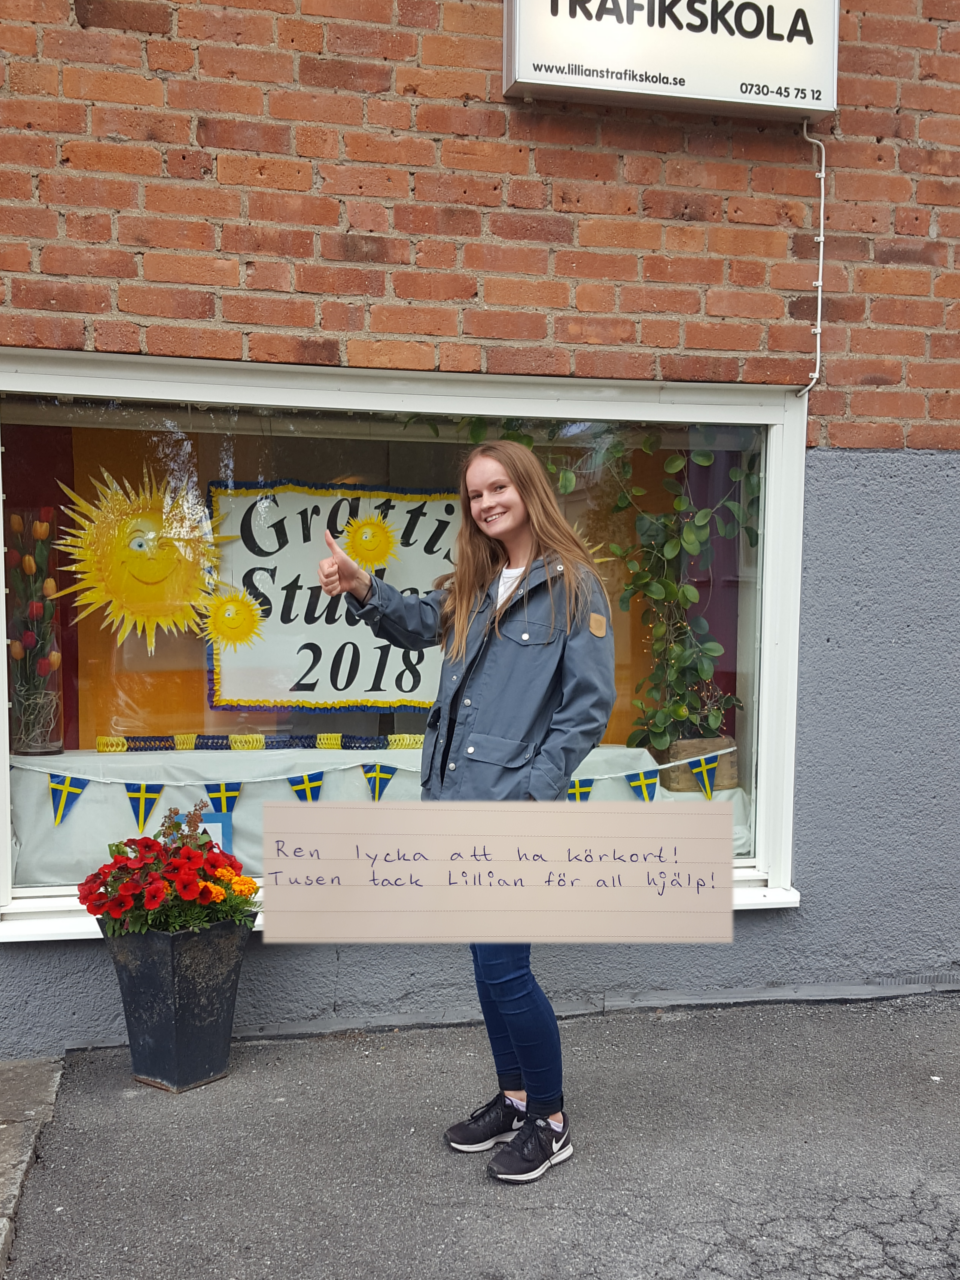 TRAFIKSKOLA
www.lillianstrafikskola.se
0730-45 75 12
Grattis
2018
Ren lycka att ha körkort!
Tusen tack Lillian för all hjälp!